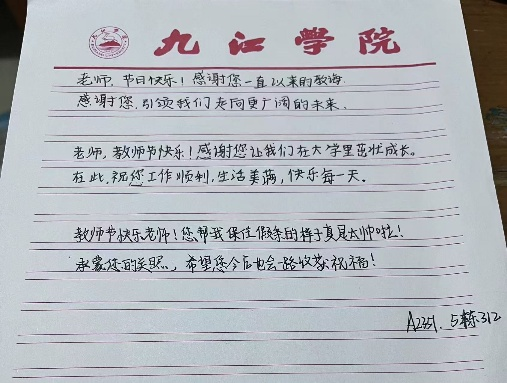 九江学院
老师,节日快乐!感谢您一直以来的教诲
感谢您,引领我们走向更广阔的未来.
老师,教师节快乐!感谢您让我们在大学里茁壮成长。
在此,祝您工作顺利,生活美满,快乐每一天。
教师节快乐老师!您帮我保住假条的样子真是太帅啦!
承蒙您的关照,希望您今后也会
祝福!
A2351. 5栋312